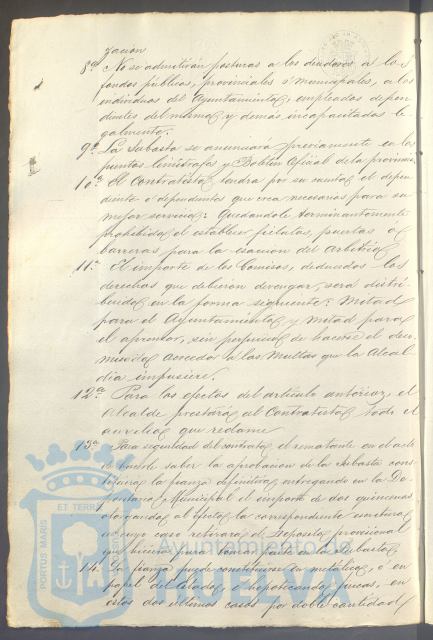 zación
8ª No se admitirán posturas a los deudores a los
fondos públicos, provinciales ó municipales, a los
individuos del Ayuntamiento, empleados depen-
dientes del mismo y demás incapacitados le-
galmente.
9ª La Subasta se anunciará previamente en los
puntos limítrofes y Boletín Oficial de la provincia.
10ª El Contratista tendrá por su cuenta el depen-
diente o dependientes que crea necesarios para su
mejor servicio: Quedándole terminantemente
prohibido el establecer fielatos, puertas o
barreras para la exacción del Arbitrio
11ª El importe de los Comisos, deducidos los
derechos que debieron devengar, será distri-
buido en la forma siguiente: Mitad
para el Ayuntamiento y mitad para
el aprensor, sin perjuicio de hacerse el deco-
misado acreedor a las Multas que la Alcal-
día impusiere.
12ª Para los efectos del artículo anterior, el
Alcalde prestará al Contratista todo el
auxilio que reclame
13ª Para seguridad del contrato, el rematante en el acto
de saber la aprobación de la Subasta cons-
tituirá la fianza definitiva entregando en la De-
positaría Municipal el importe de dos quincenas
otorgando al efecto la correspondiente escritura
en cuyo caso retirará el deposito provisional
que hiciera para tomar parte en la Subasta
14. La fianza puede constituirse en metálico, o en
papel del Estado, o hipotecando fincas, en
estos dos ultimos casos por doble cantidad
PORTUS MARIS
ET TERRÆ
Ayuntamiento de
HUELVA